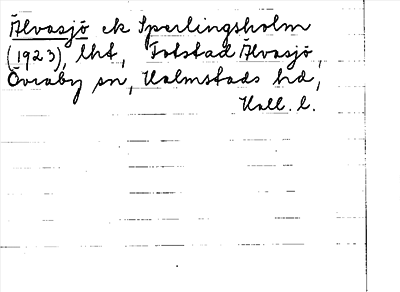 Älvasjö ek Sperlingsholm
(1923), lht, Totstad Älvasjö,
Övraby sn, Halmstads hd,
Hall. l.